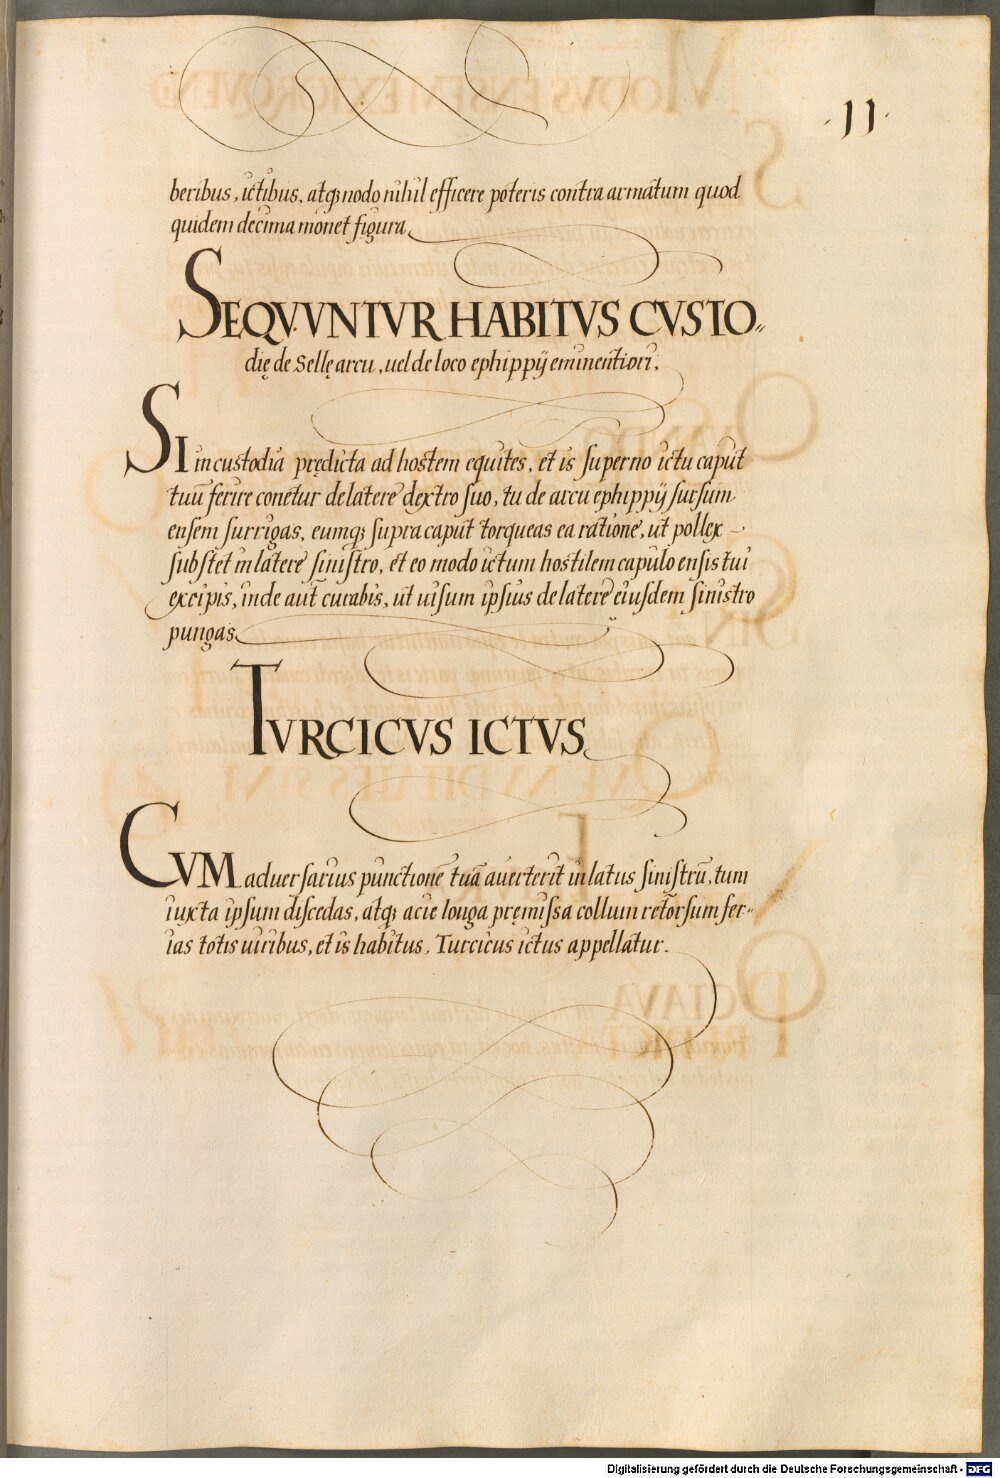 ·11·
beribus, ictibus, atq; nodo nihil efficere poteris contra armatum quod
quidem decima monet figura
SEQVVNTVR HABITVS CVSTO„
dię de Sellę arcu, uel de loco ephippÿ eminentiori.
SI in custodia prędicta ad hostem equites, et is superno ictu caput
tuū ferire conetur de latere dextro suo, tu de arcu ephippÿ sursum
ensem surrigas, eumq; supra caput torqueas ea ratione, ut pollex –
substet in latere sinistro, et eo modo ictum hostilem capulo ensis tui
excipis, inde aut̄ curabis, ut uisum ipsius de latere eiusdem sinistro
pungas
TVRCICVS ICTVS
CVM aduersarius punctionē tuā auerterit in latus sinistrū, tum
iuxta ipsum discedas, atq; acie longa pręmissa collum retorsum fer-
ias totis uiribus, et is habitus, Turcicus ictus appellatur.
Digitalisierung gefördert durch die Deutsche Forschungsgemeinschaft - DFG